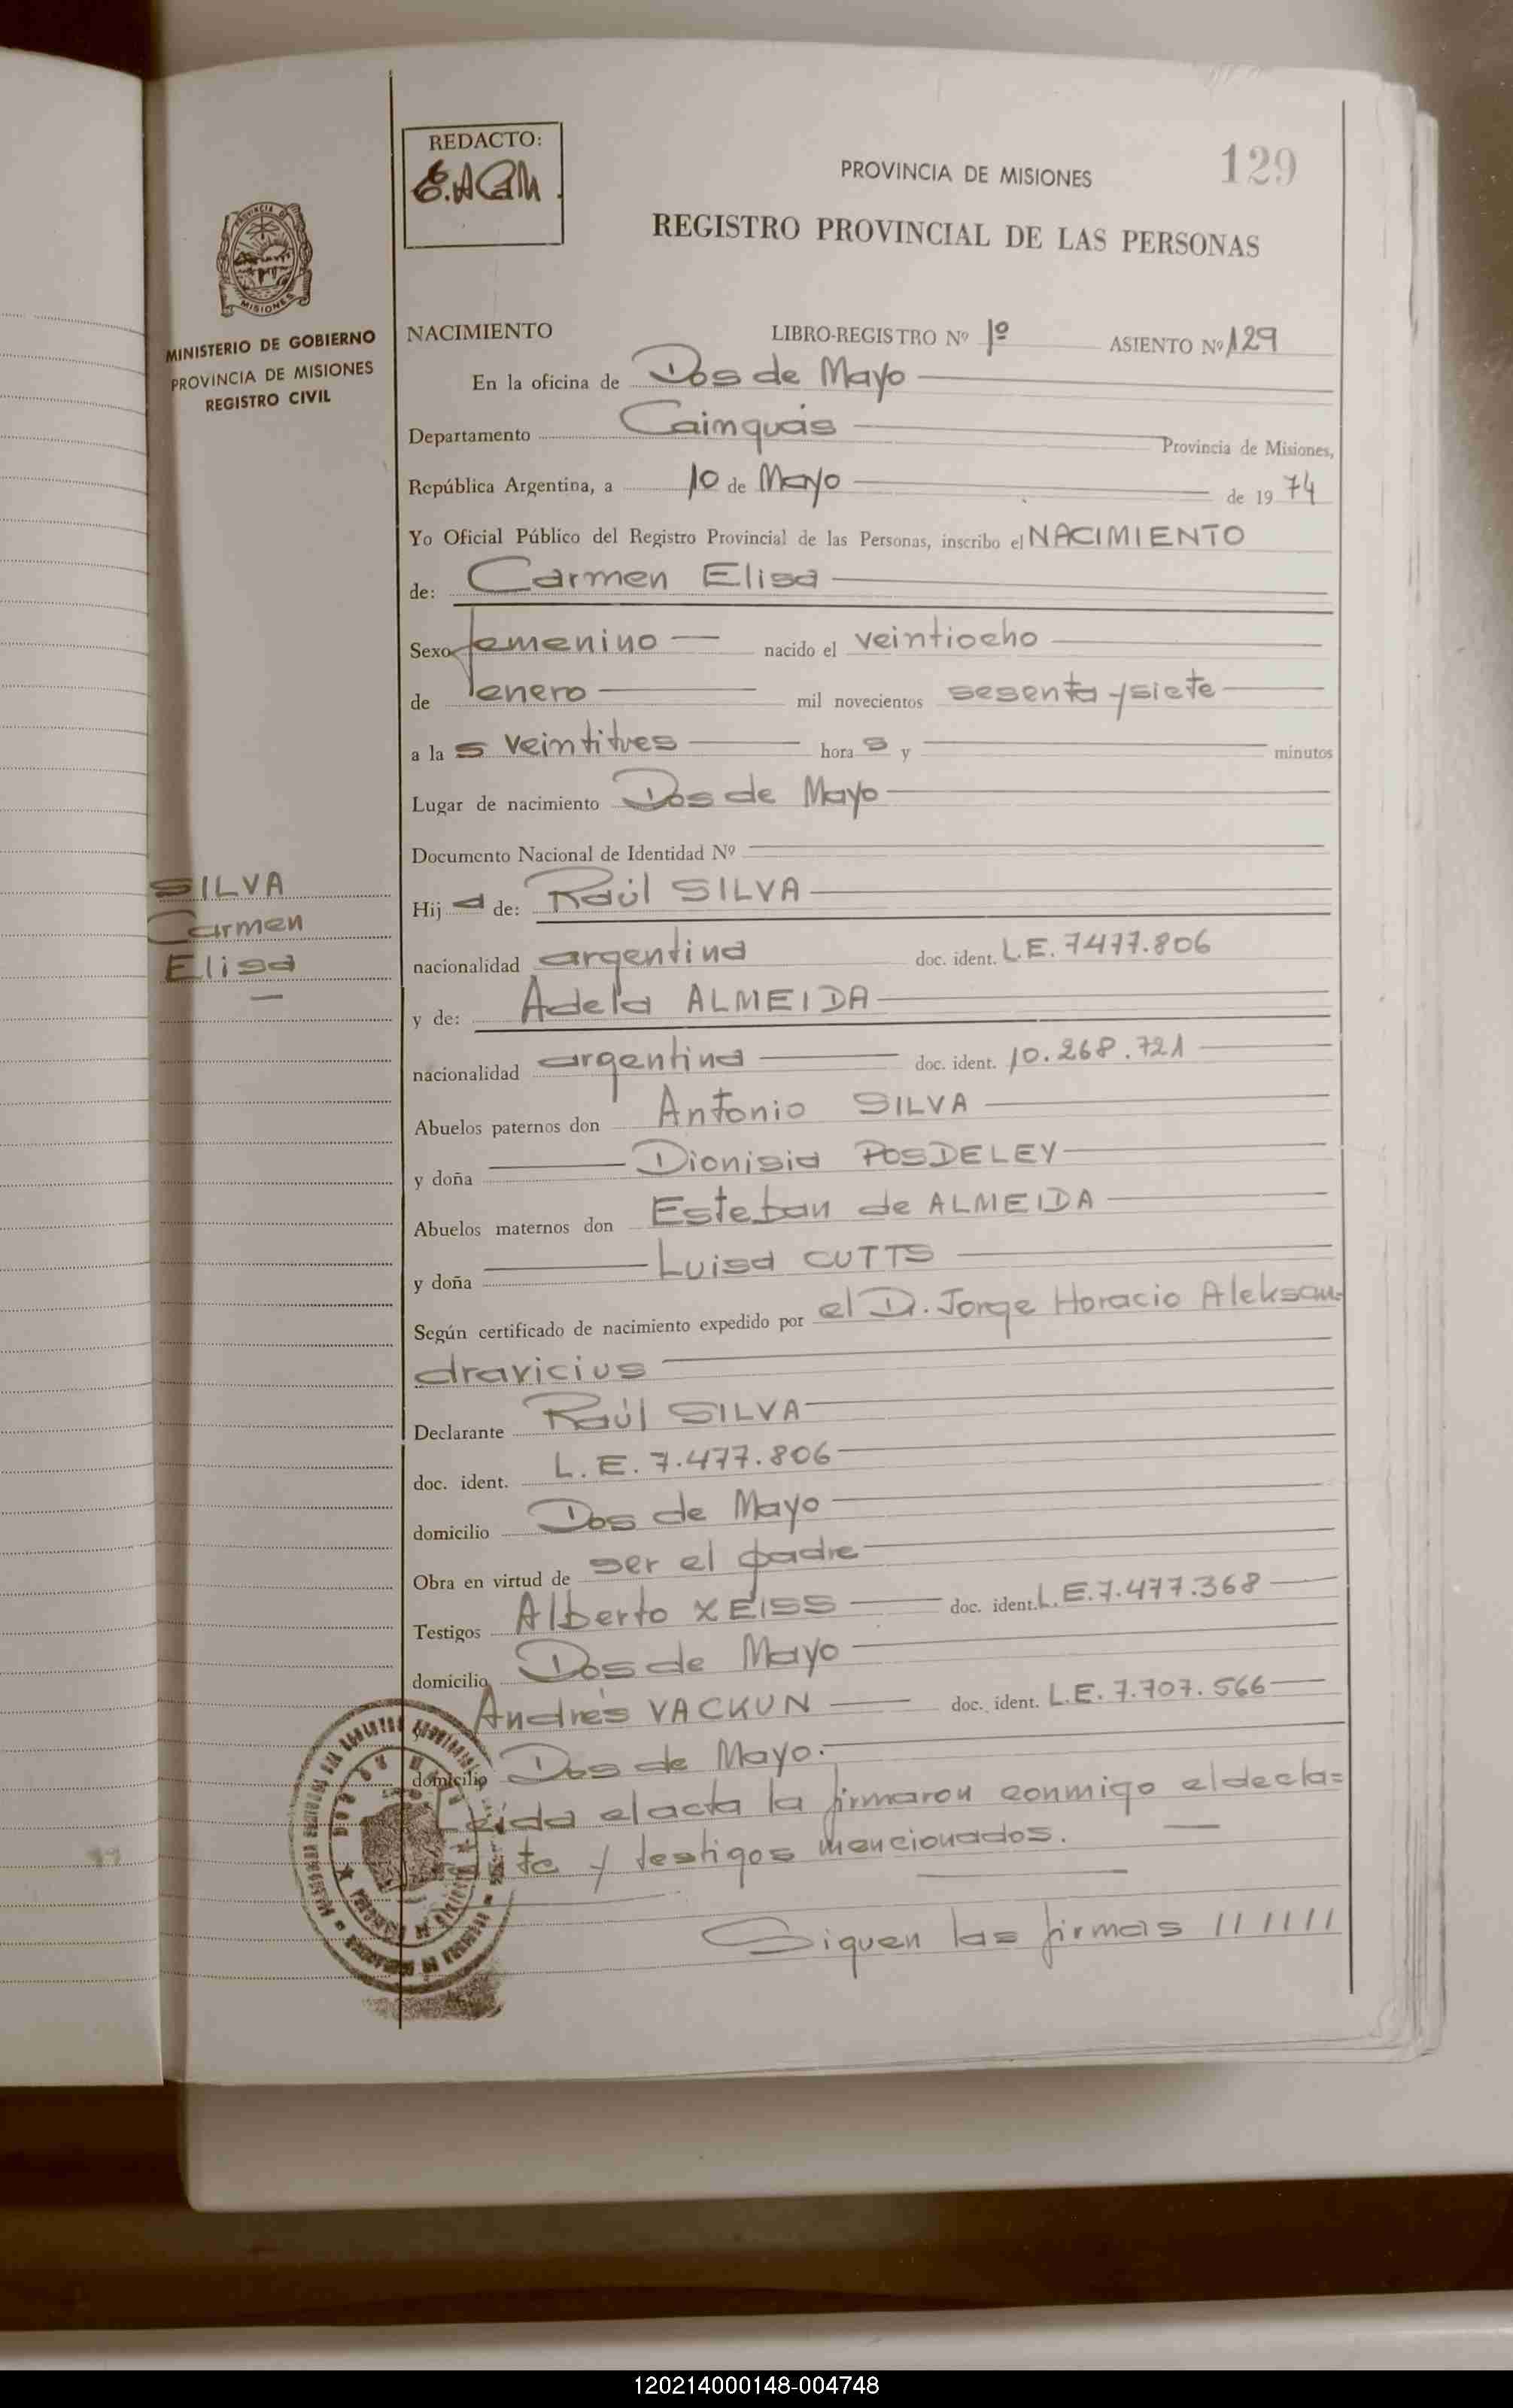 REDACTO:
PROVINCIA DE MISIONES
129
REGISTRO PROVINCIAL DE LAS PERSONAS
MISIONES
MINISTERIO DE GOBIERNO
PROVINCIA DE MISIONES
REGISTRO CIVIL
NACIMIENTO LIBRO-REGISTRO Nº 1º ASIENTO Nº 129
En la oficina de Dos de Mayo
Departamento Cainguás Provincia de Misiones,
República Argentina, a 10 de Mayo de 1974
Yo Oficial Público del Registro Provincial de las Personas, inscribo el NACIMIENTO
de: Carmen Elisa
Sexo femenino nacido el veintiocho
de enero mil novecientos sesenta y siete
a la s veintitres hora s y minutos
Lugar de nacimiento Dos de Mayo
Documento Nacional de Identidad Nº
SILVA
Carmen
Elisa
Hij a de: Raúl SILVA
nacionalidad argentina doc. ident. L.E. 7477.806
y de: Adela ALMEIDA
nacionalidad argentina doc. ident. 10.268.721
Abuelos paternos don Antonio SILVA
y doña Dionisia POSDELEY
Abuelos maternos don Esteban de ALMEIDA
y doña Luisa CUTTS
Según certificado de nacimiento expedido por el Dr. Jorge Horacio Aleksan=
dravicius
Declarante Raúl SILVA
doc. ident. L.E. 7.477.806
domicilio Dos de Mayo
Obra en virtud de ser el padre
Testigos Alberto XEISS doc. ident. L.E. 7.477.368
domicilio Dos de Mayo
Andrés VACKUN doc. ident. L.E. 7.707.566
domicilio Dos de Mayo.
Leida el acta la firmaron conmigo el decla=
rante y testigos mencionados.
Siguen las firmas ///////
120214000148-004748